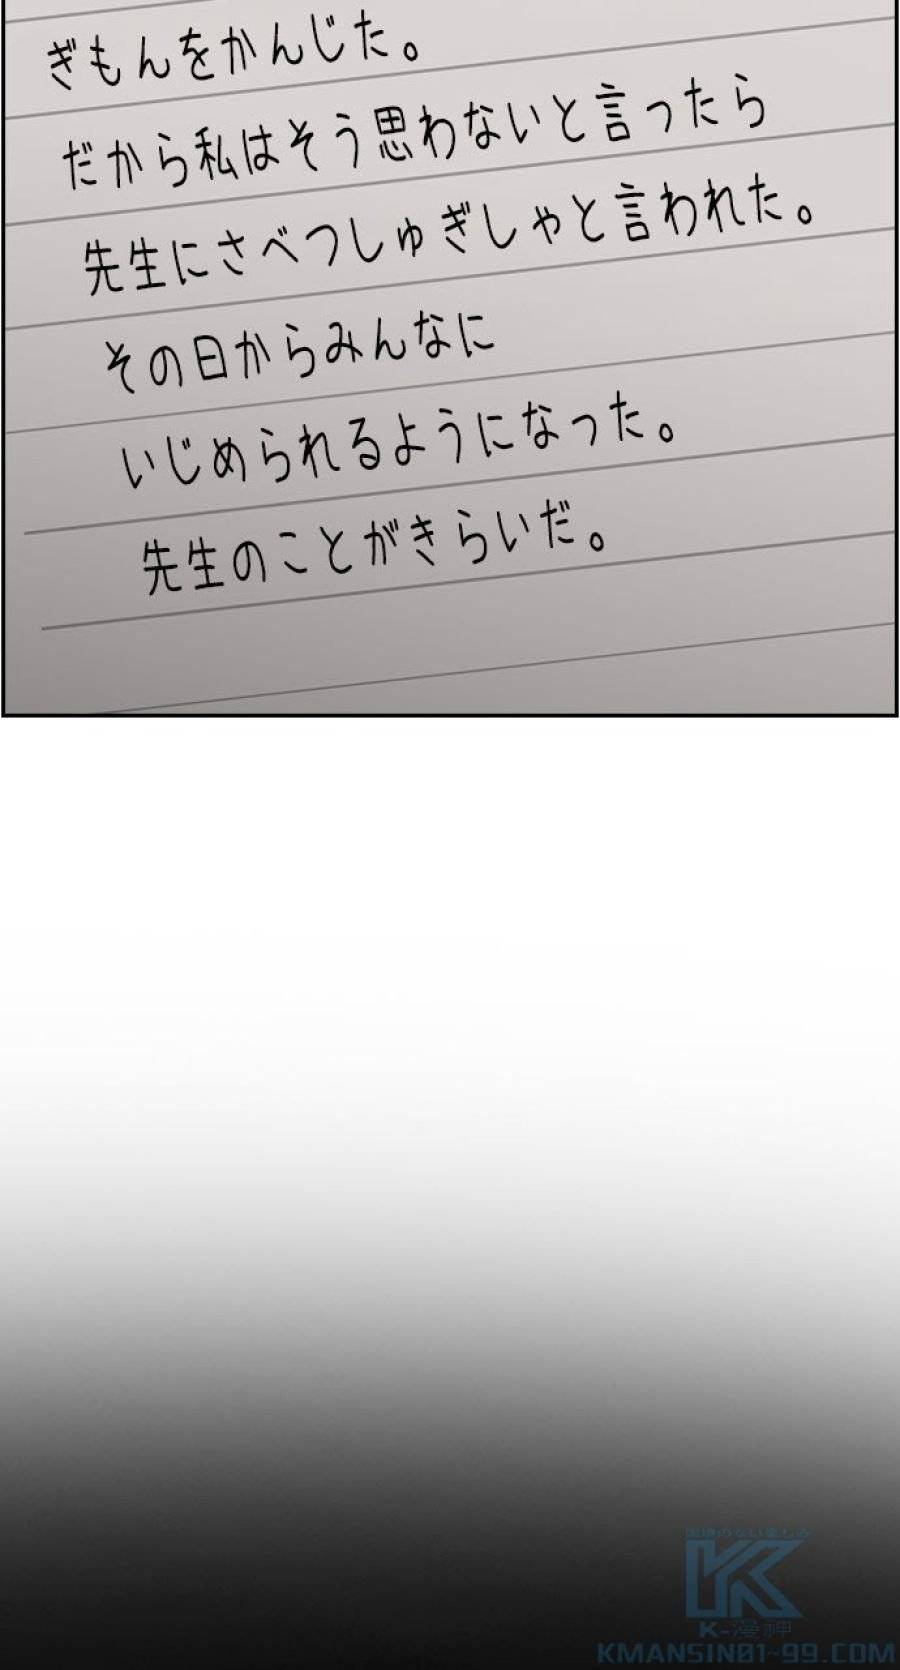 ぎもんをかんじた。
だから私はそう思わないと言ったら
先生にさべつしゅぎしゃと言われた。
その日からみんなに
いじめられるようになった。
先生のことがきらいだ。
K-漫神
KMANSIN01-99.COM